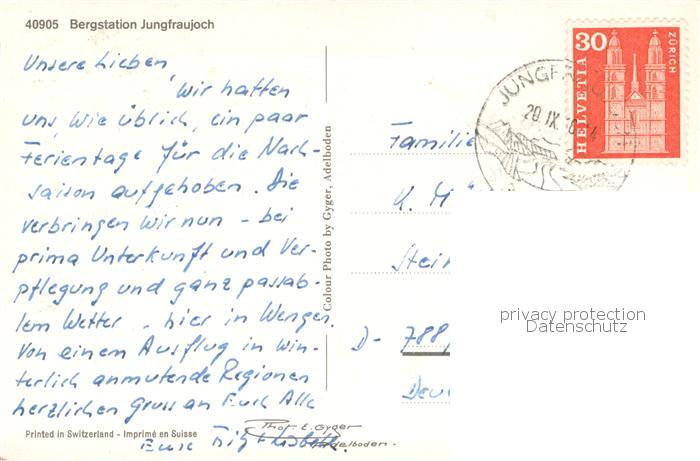 40905 Bergstation Jungfraujoch
Unsere Lieben
Wir hatten
uns, wie üblich, ein paar
Ferientage für die Nach-
saison aufgehoben. Die
verbringen wir nun - bei
prima Unterkunft und Ver-
pflegung und ganz passab-
lem Wetter - hier in Wengen.
Von einem Ausflug in win-
terlich anmutende Regionen
herzlichen Gruss an Euch Alle
Eure Fritz + Lisbeth
Printed in Switzerland - Imprimé en Suisse
Phot. E. Gyger
Adelboden.
Colour Photo by Gyger, Adelboden
30
HELVETIA
ZÜRICH
JUNGFR
20.IX.
Familie
K. M
Stein
D- 788
Deu
privacy protection
Datenschutz